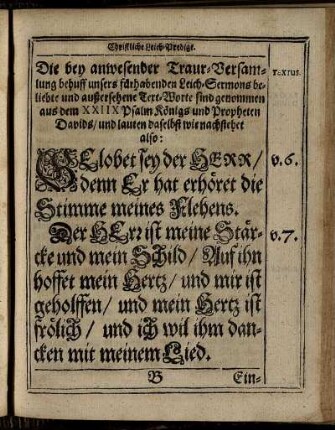 Christliche Leich-Predigt.
Die bey anwesender Traur-Versam-
lung behuff unsers fürhabenden Leich-Sermons be-
liebte und außersehene Text-Worte sind genommen
aus dem XXIIX Psalm Königs und Propheten
Davids/ und lauten daselbst wie nachstehet
also:
TEXTUS.
GElobet sey der HERR/
denn Er hat erhöret die
Stimme meines Flehens.
v. 6.
Der HErr ist meine Stär-
cke und mein Schild/ Auf ihn
hoffet mein Hertz/ und mir ist
geholffen/ und mein Hertz ist
frölich/ und ich wil ihm dan-
cken mit meinem Lied.
v. 7.
B
Ein-